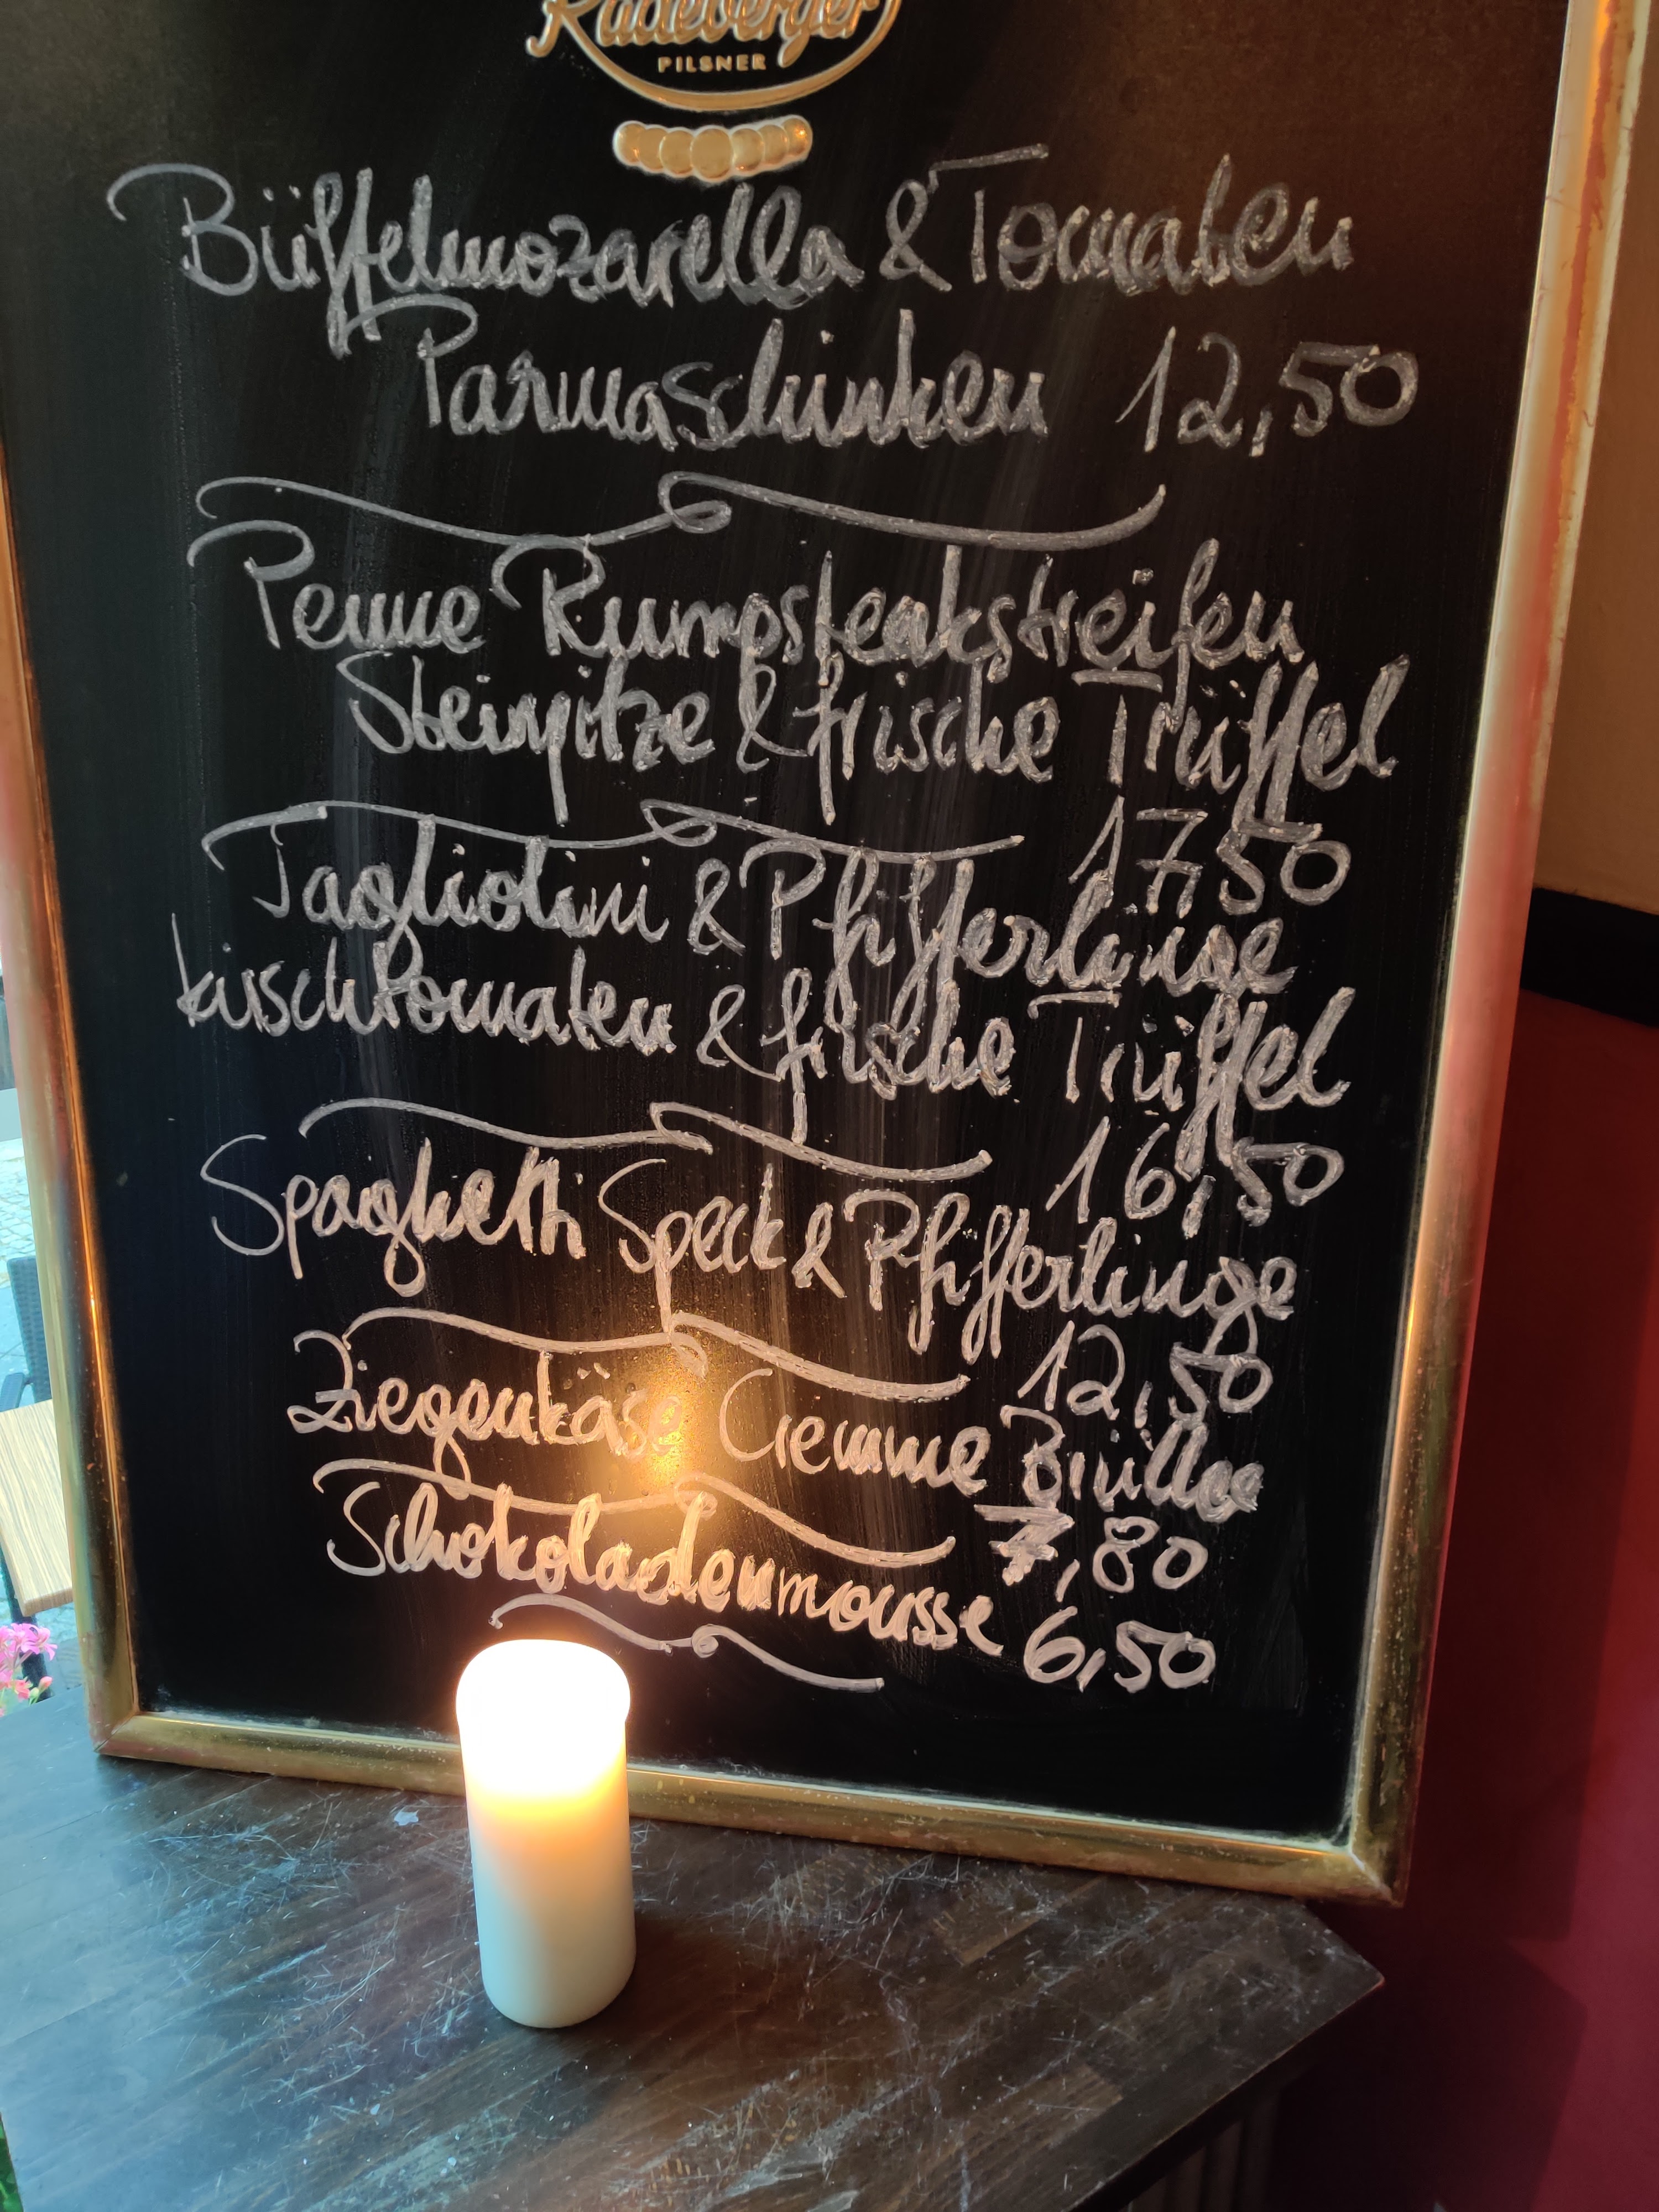 Radeberger
PILSNER
Büffelmozarella & Tomaten
Parmaschinken 12,50
Penne Rumpsteakstreifen
Steinpilze & frische Trüffel
17,50
Tagliolini & Pfifferlinge
kirschtomaten & frische Trüffel
16,50
Spaghetti Speck & Pfifferlinge
12,50
Ziegenkäse Cremme Brüllee
7,80
Schokoladenmousse 6,50